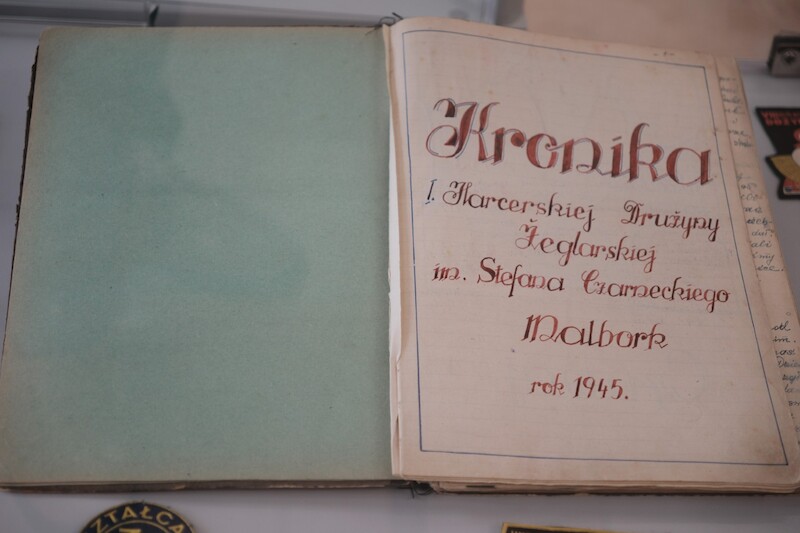 Kronika
I. Harcerskiej Drużyny
Żeglarskiej
im. Stefana Czarneckiego
Malbork
rok 1945.
ZTAŁCA